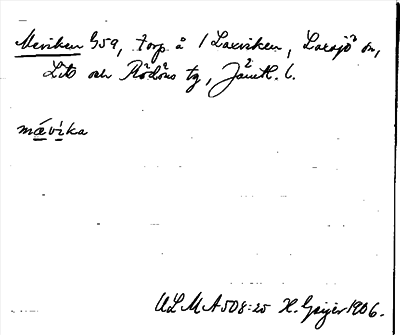 Meviken 959, torp å 1 Laxviken, Laxsjö sn,
Lits och Rödöns tg, Jämtl. l.
mǽvìka
ULMA 508:25 H. Geijer 1906.